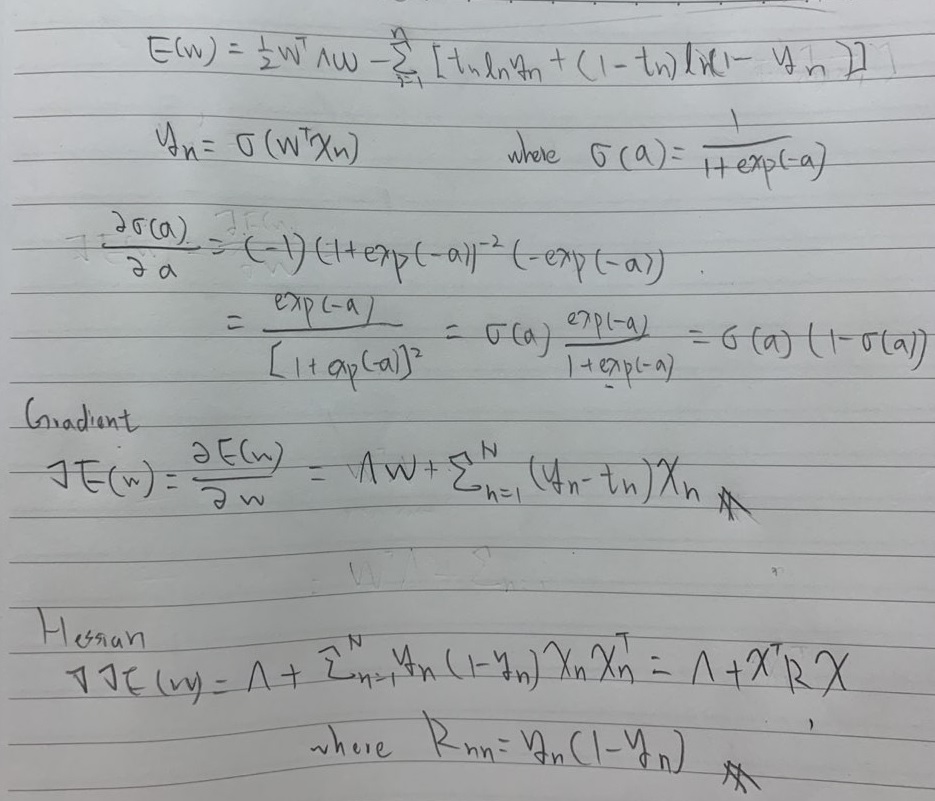 E(w) = ½ wᵀΛw − Σⁿᵢ₌₁ [tₙ ln yₙ + (1 − tₙ) ln(1 − yₙ)]
yₙ = σ(wᵀxₙ) where σ(a) = 1 / (1 + exp(−a))
∂σ(a)/∂a = (−1) (1 + exp(−a))⁻² (−exp(−a))
= exp(−a) / [1 + exp(−a)]² = σ(a) exp(−a) / (1 + exp(−a)) = σ(a) (1 − σ(a))
Gradient
∇E(w) = ∂E(w)/∂w = Λw + Σᴺₙ₌₁ (yₙ − tₙ)xₙ
Hessian
∇∇E(w) = Λ + Σᴺₙ₌₁ yₙ(1 − yₙ)xₙxₙᵀ = Λ + XᵀRX,
where Rₙₙ = yₙ(1 − yₙ)